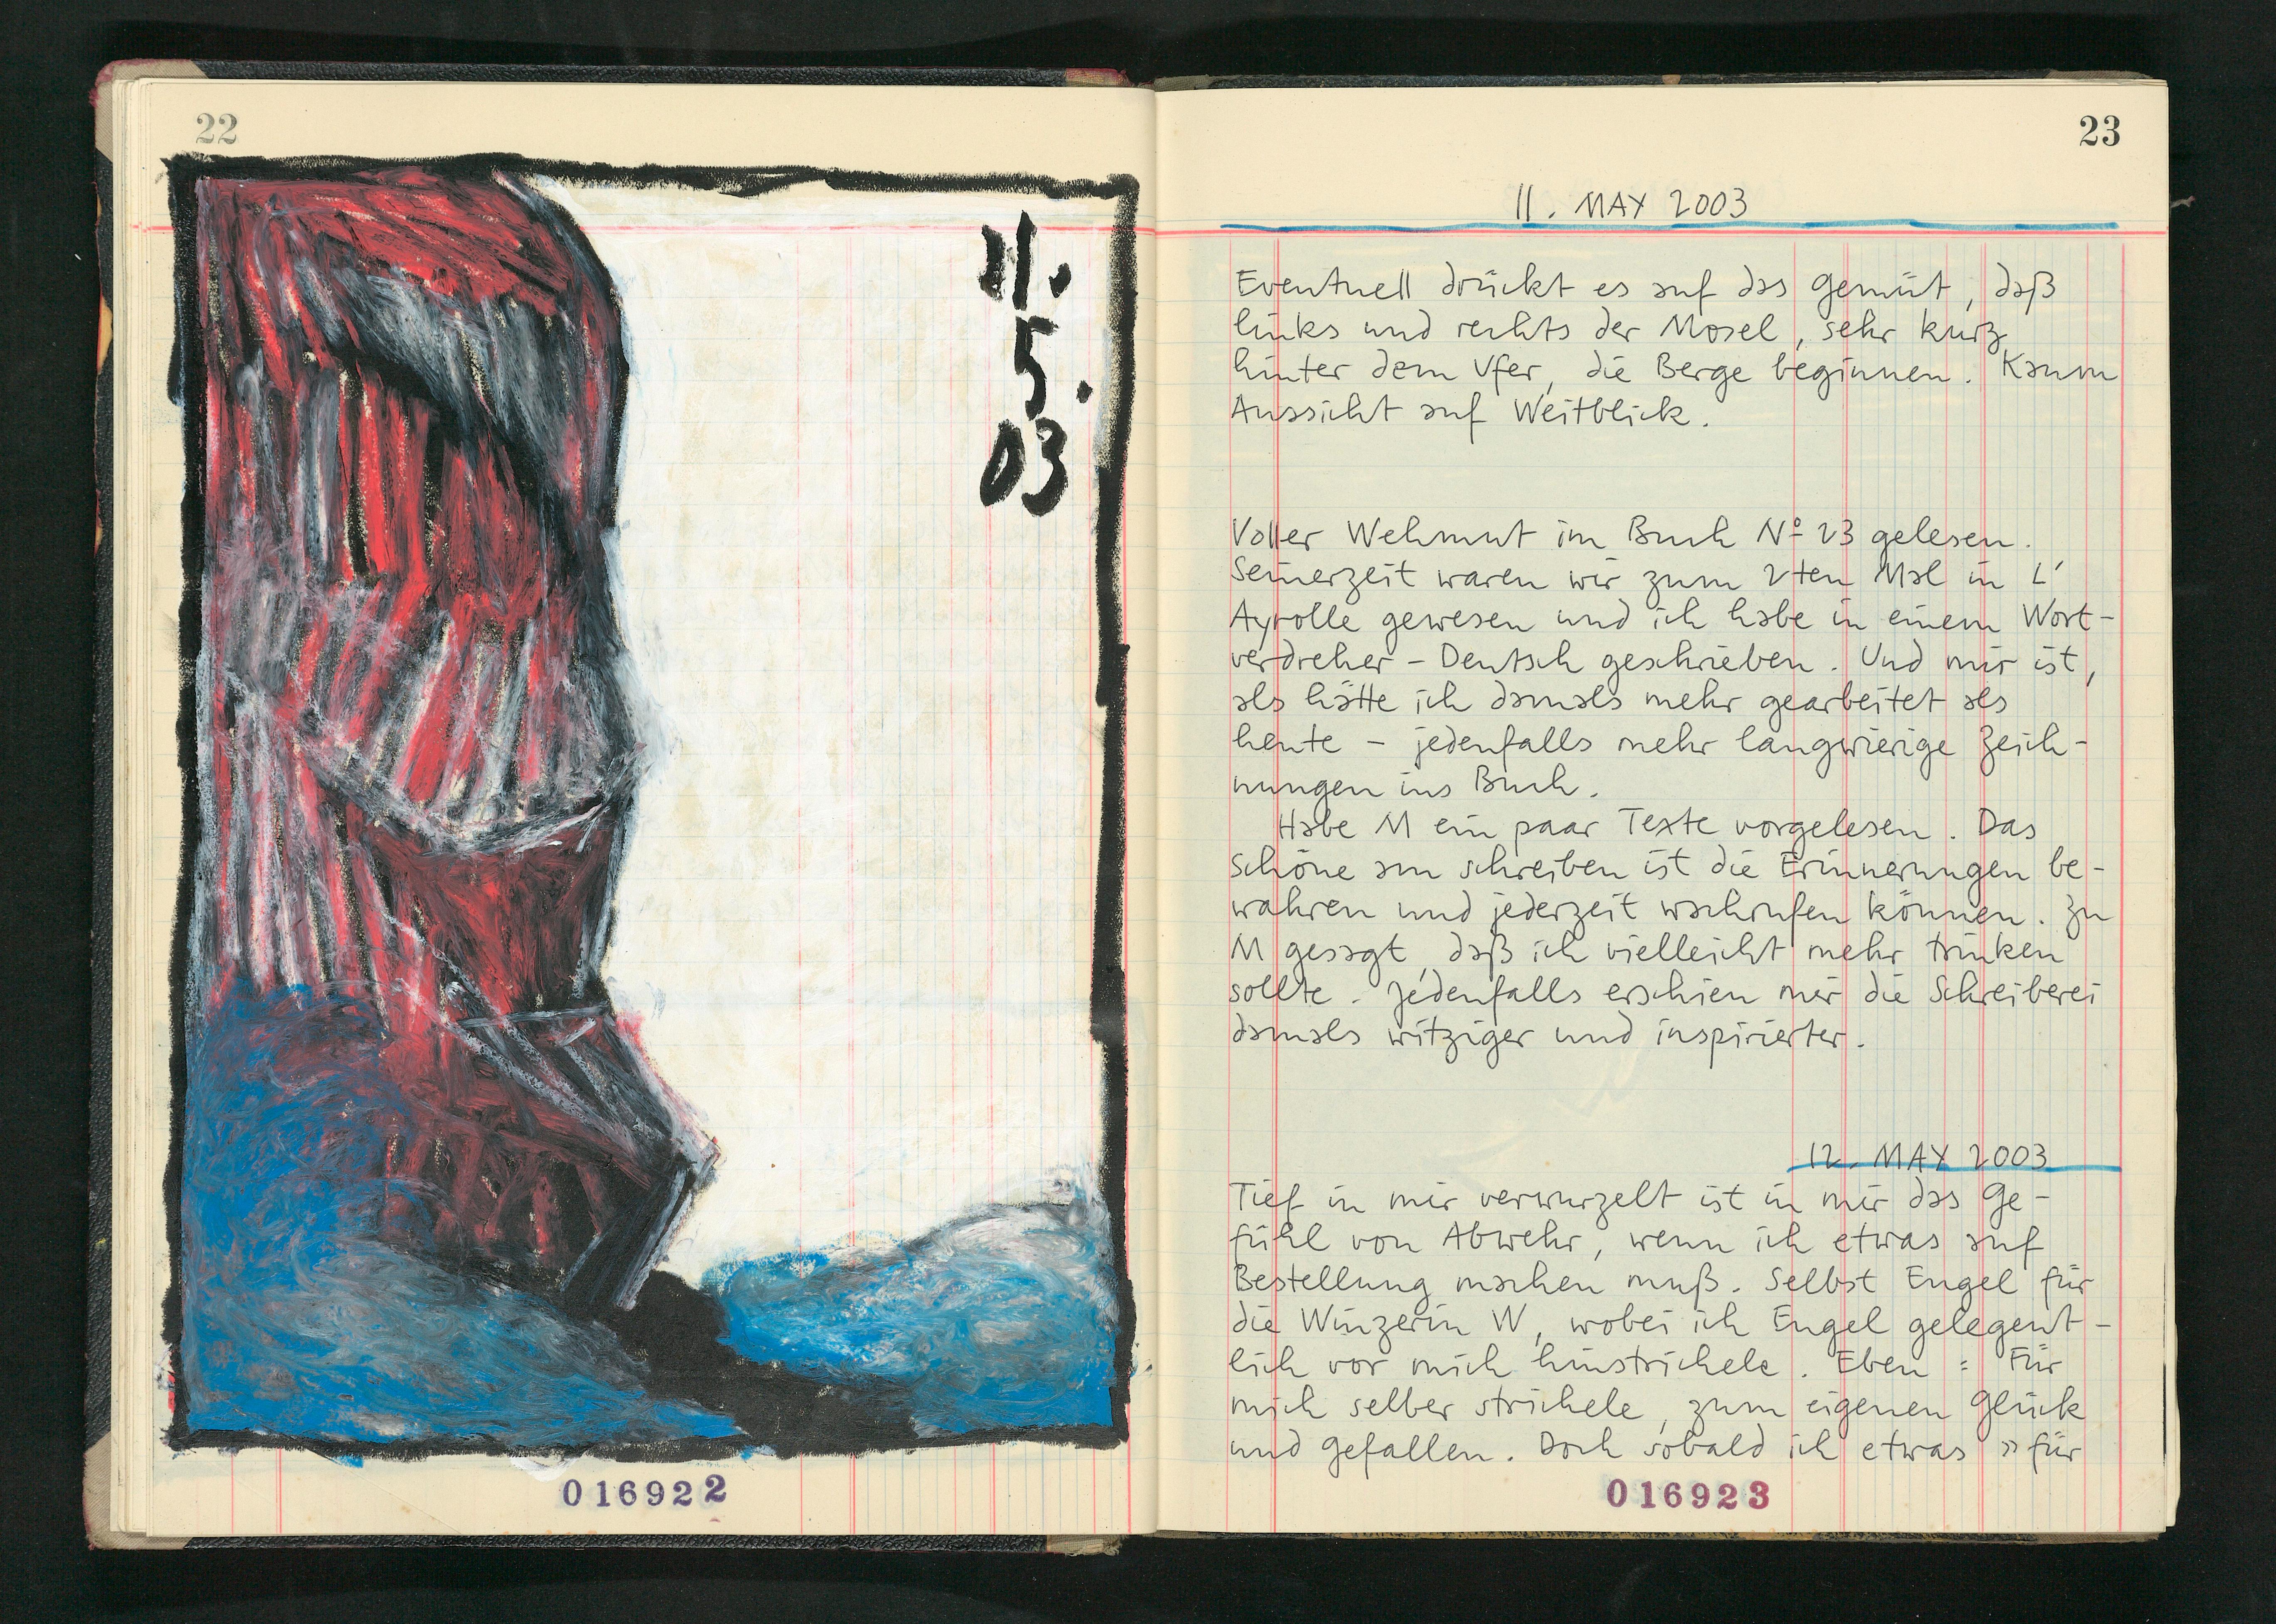 22
11.
5.
03
016922
23
11. MAY 2003
Eventuell drückt es auf das Gemüt, daß
links und rechts der Mosel, sehr kurz
hinter dem Ufer, die Berge beginnen. Kaum
Aussicht auf Weitblick.
Voller Wehmut im Buch Nº 23 gelesen.
Seinerzeit waren wir zum 2ten Mal in L'
Ayrolle gewesen und ich habe in einem Wort-
verdreher-Deutsch geschrieben. Und mir ist,
als hätte ich damals mehr gearbeitet als
heute – jedenfalls mehr langwierige Zeich-
nungen ins Buch.
Habe M ein paar Texte vorgelesen. Das
Schöne am schreiben ist die Erinnerungen be-
wahren und jederzeit wachrufen können. Zu
M gesagt, daß ich vielleicht mehr trinken
sollte. Jedenfalls erschien mir die Schreiberei
damals witziger und inspirierter.
12. MAY 2003
Tief in mir verwurzelt ist in mir das Ge-
fühl von Abwehr, wenn ich etwas auf
Bestellung machen muß. Selbst Engel für
die Winzerin W, wobei ich Engel gelegent-
lich vor mich hinstrichele. Eben: Für
mich selber strichele, zum eigenen Glück
und Gefallen. Doch sobald ich etwas »für
016923